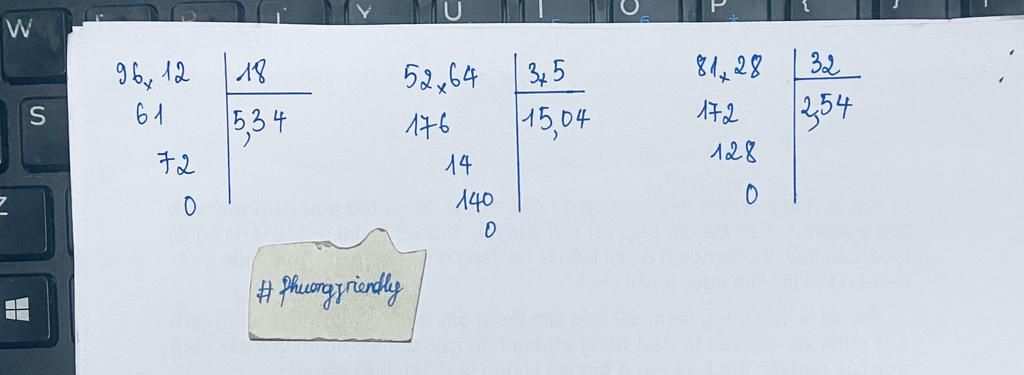 96,12 18
61 5,34
72
0
52,64 3,5
176 15,04
14
140
0
81,28 32
172 2,54
128
0
# Phuongfriendly
W
S
Z
Y
U
I
O
P
{